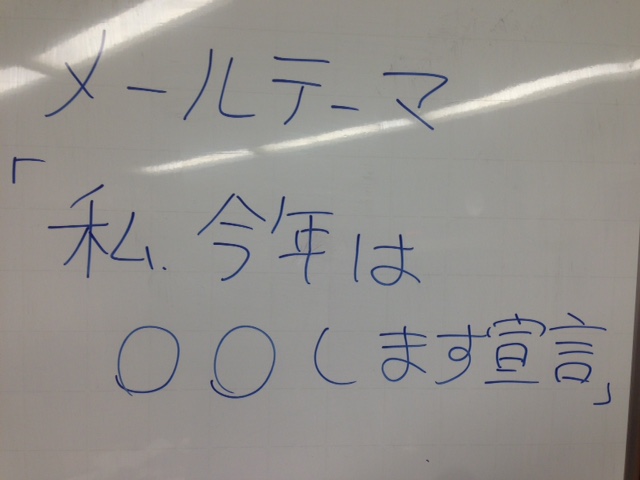 メールテーマ
「私、今年は
〇〇します宣言」